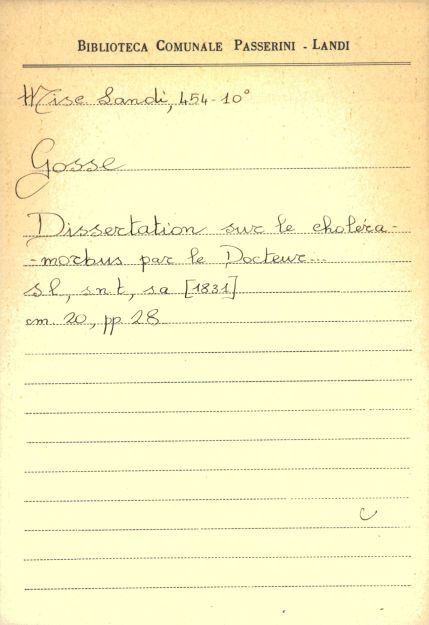 BIBLIOTECA COMUNALE PASSERINI - LANDI
Misc. Landi, 454-10°
Gosse
Dissertation sur le choléra-
-morbus par le Docteur...
S.l., s.n.t., s.a. [1831]
cm. 20, pp. 28
C